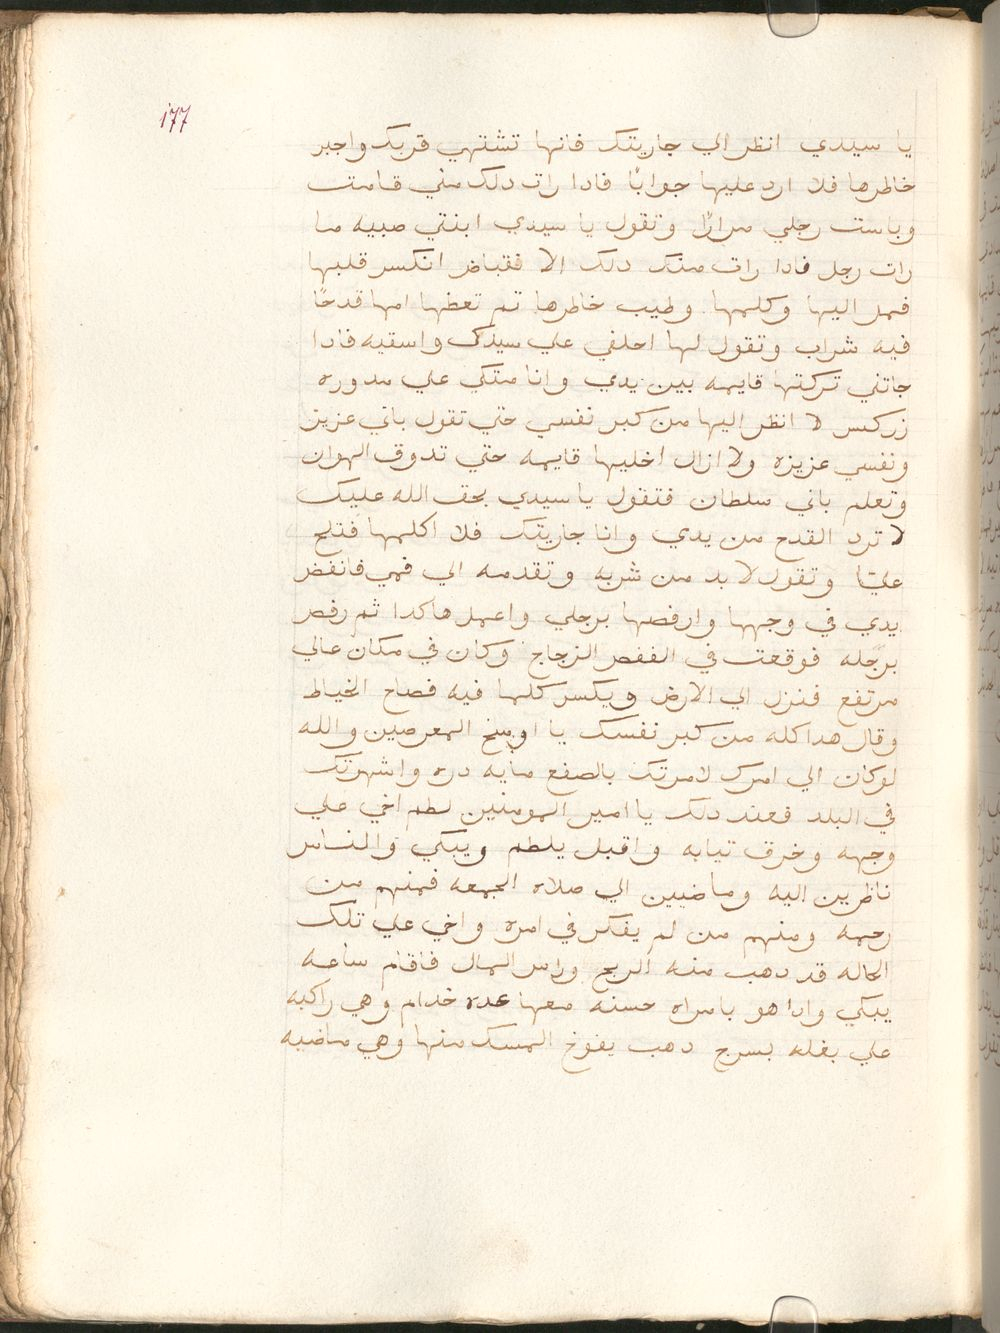 177
يا سيدي انظر الي جاريتك فانها تشتهي قربك واجبر
خاطرها فلا ارد عليها جوابًا فادا رات دلك مني قامت
وباست رجلي مرارًا وتقول يا سيدي ابنتي صبيه ما
رات رجل فادا رات منك دلك الا فقباض انكسر قلبها
فمل اليها وكلمها وطيب خاطرها تم تعطها امها قدحًا
فيه شراب وتقول لها احلفي علي سيدك واسقيه فادا
جاتني تركتها قايمه بين يدي وانا متكي علي مدوره
زركس لا انظر اليها من كبر نفسي حتي تقول باني عزيز
ونفسي عزيزه ولا ازال اخليها قايمه حتي تدوق الهوان
وتعلم باني سلطان فتقول يا سيدي بحق الله عليك
لا ترد القدح من يدي وانا جاريتك فلا اكلمها فتلح
عليّا وتقول لا بد من شربه وتقدمه الي فمي فانفض
يدي في وجهها وارفصها برجلي واعمل هاكدا ثم رفص
برجله فوقعت في القفص الزجاج وكان في مكان عالي
مرتفع فنزل الي الارض ويكسر كلها فيه فصاح الخياط
وقال هدا كله من كبر نفسك يا اوسخ المعرصين والله
لو كان الي امرك لامرتك بالصفع مايه دره واشهرتك
في البلد فعند دلك يا امير المومنين لطم اخي علي
وجهه وخرق تيابه واقبل يلطم ويبكي والناس
ناظرين اليه وماضيين الي صلاه الجمعه فمنهم من
رحمه ومنهم من لم يفكر في امره واخي علي تلك
الحاله قد دهب منه الربح وراس المال فاقام ساعه
يبكي وادا هو بامراه حسنه معها عده خدام وهي راكبه
علي بغله بسرج دهب يفوح المسك منها وهي ماضيه